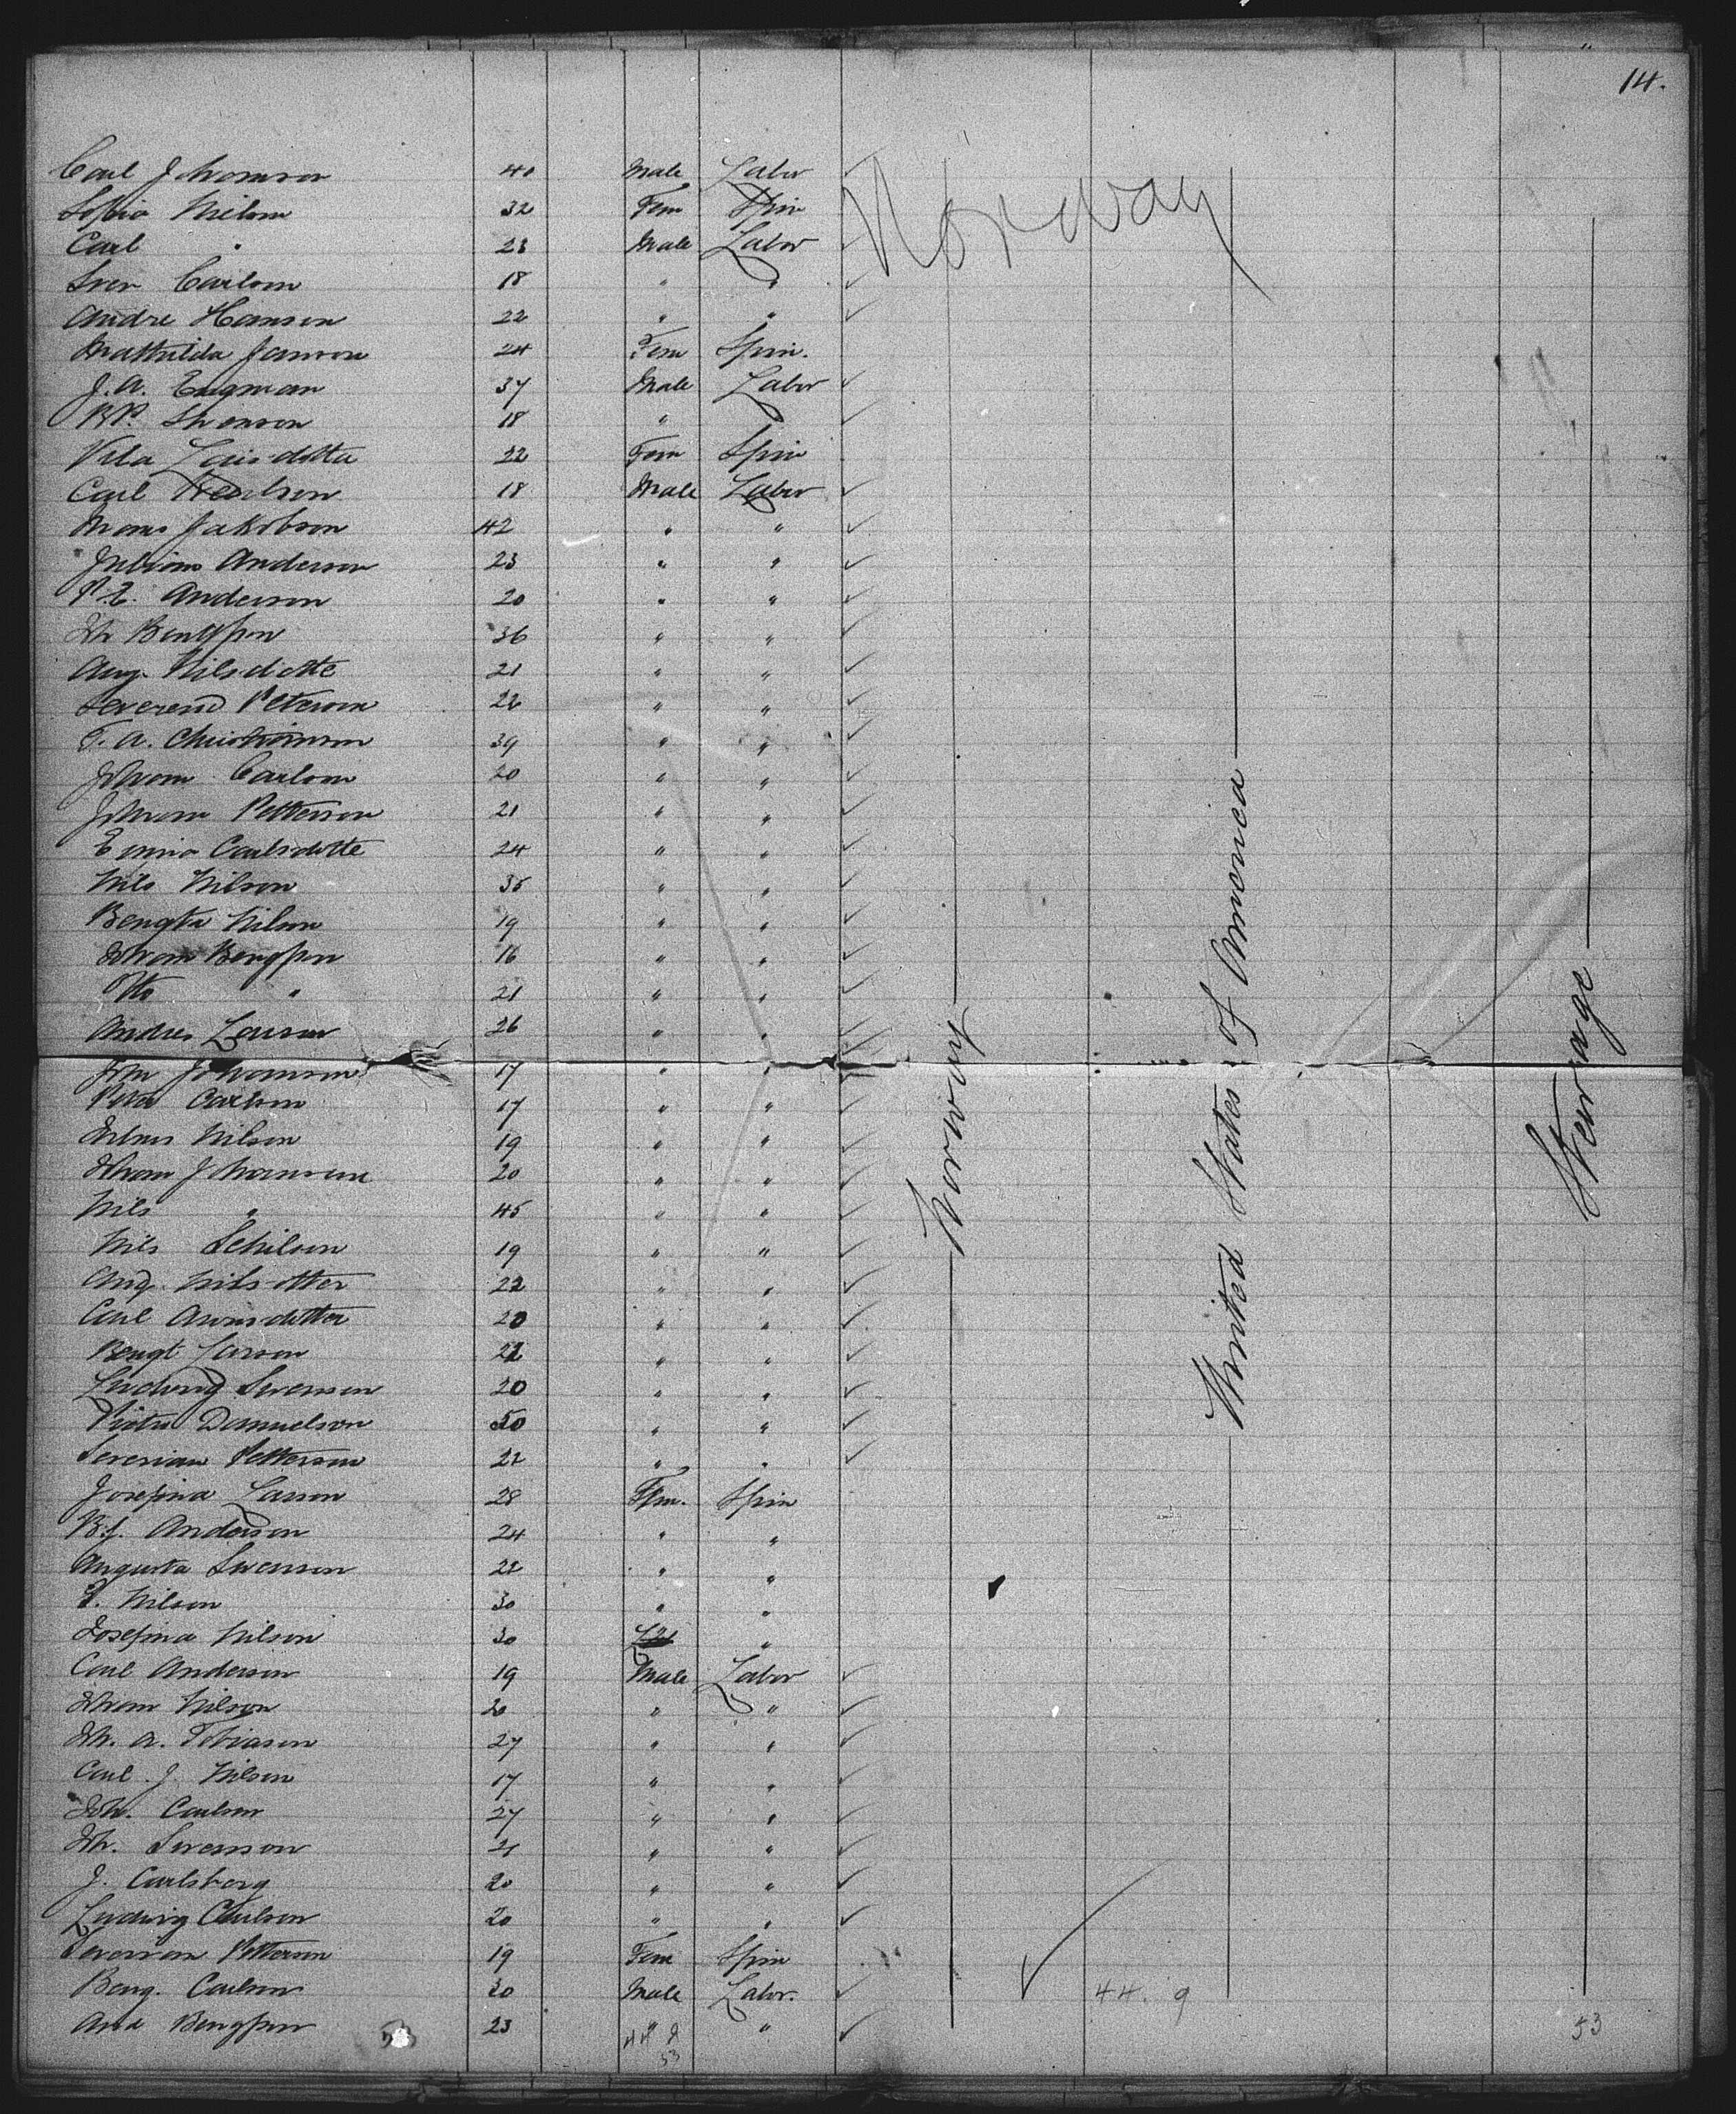 14.
Norway
Carl Johanson 40 Male Labor ✓
Sofia Nilson 32 Fem Spin
Carl " 23 Male Labor ✓
Sven Carlson 18 " " ✓
Andre Hanson 22 " " ✓
Mathilda Janson 24 Fem Spin.
J. A. Engman 37 Male Labor ✓
B.P. Swenson 18 " ✓
Lars dotta 22 Fem Spin
Carl 18 Male Labor ✓
Mons Jakobson 42 " " ✓
Julius Anderson 23 " " ✓
P. E. Anderson 20 " " ✓
Jh Bengtson 36 " " ✓
Aug. Nilsdotte 21 " " ✓
Severend Peterson 22 " " ✓
F. A. Christianson 39 " " ✓
Johan Carlson 20 " " ✓
Johan Petterson 21 " " ✓
Emma Carlsdotte 24 " " ✓
Nils Nilson 35 " " ✓
Bengta Nilson 19 " " ✓
Johan Bengtson 16 " " ✓
Otto " 21 " " ✓
Andres Larson 26 " " ✓
Joh Johanson 17 " " ✓
Peter Carlson 17 " " ✓
Nilson 19 " " ✓
Johan Johanson 20 " " ✓
Nils " 45 " " ✓
Nils 19 " " ✓
Aug. Nilsotter 22 " " ✓
Carl dotter 20 " " ✓
Bengt Larson 22 " " ✓
Ludwig Swenson 20 " " ✓
Danielson 50 " " ✓
Severian Petterson 22 " " ✓
Josefina Larson 28 Fem. Spin
B.J. Anderson 24 " "
Augusta Swenson 22 " "
E. Nilson 30 " "
Josefina Nilson 30 "
Carl Anderson 19 Male Labor ✓
Johan Nilson 20 " " ✓
Jh. A. Tobiason 27 " " ✓
Carl J. Nilson 17 " " ✓
Joh. Carlson 27 " " ✓
Jh. Swenson 21 " " ✓
J. Carlsberg 20 " " ✓
Ludwig Carlson 20 " " ✓
Severian Petterson 19 Fem Spin
Beng. Carlson 30 Male Labor. ✓
And Bengtson 23 " " ✓
Norway
United States of America
Steerage
✓
44. 9
53
44 9
53
53